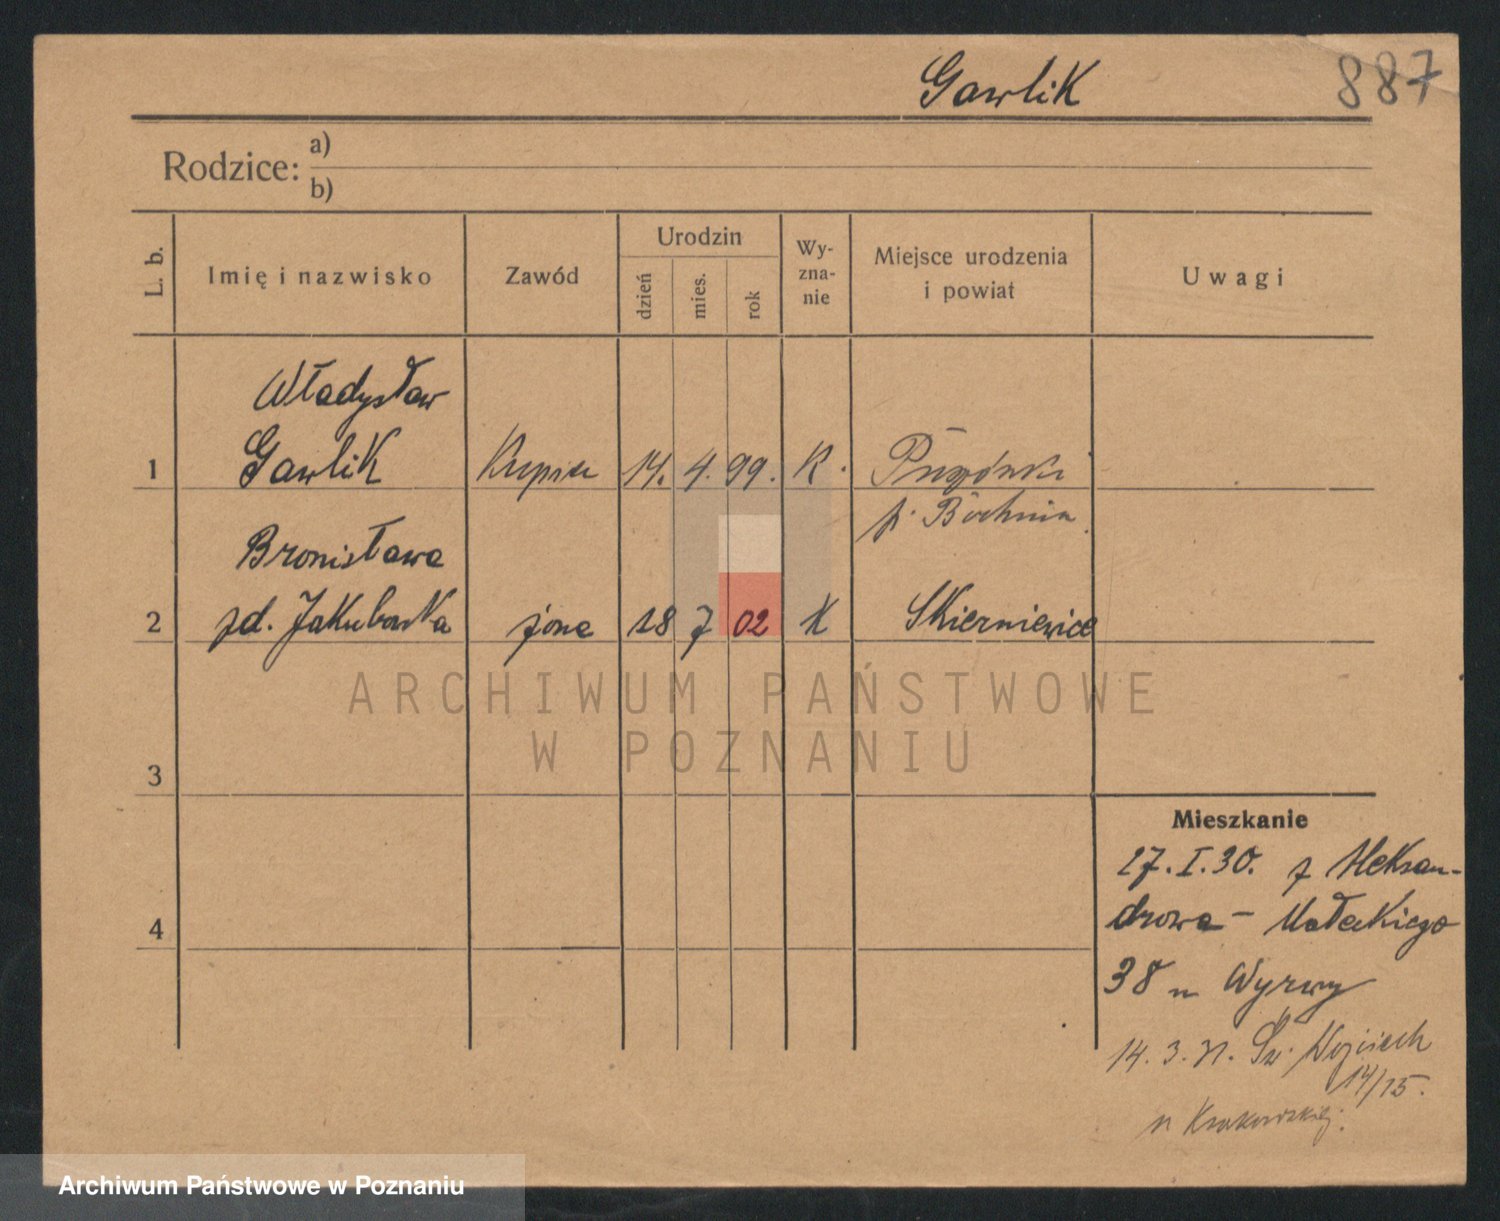 Gawlik
887
Rodzice: a)
b)
L. b.
Imię i nazwisko
Zawód
Urodzin
dzień
mies.
rok
Wy-
zna-
nie
Miejsce urodzenia
i powiat
Uwagi
Władysław
1 Gawlik 14. 4. 99. K.
p. Bochnia
Bronisława
2 zd. Jakubowska żona 28 7 02 K Skierniewice
ARCHIWUM PAŃSTWOWE
W POZNANIU
3
4
Mieszkanie
27.I.30. z Aleksan-
drowa - Małeckiego
38 u Wyrwy
14. 3. 31. Św. Wojciech
14/15.
u Krakowskiej.
Archiwum Państwowe w Poznaniu